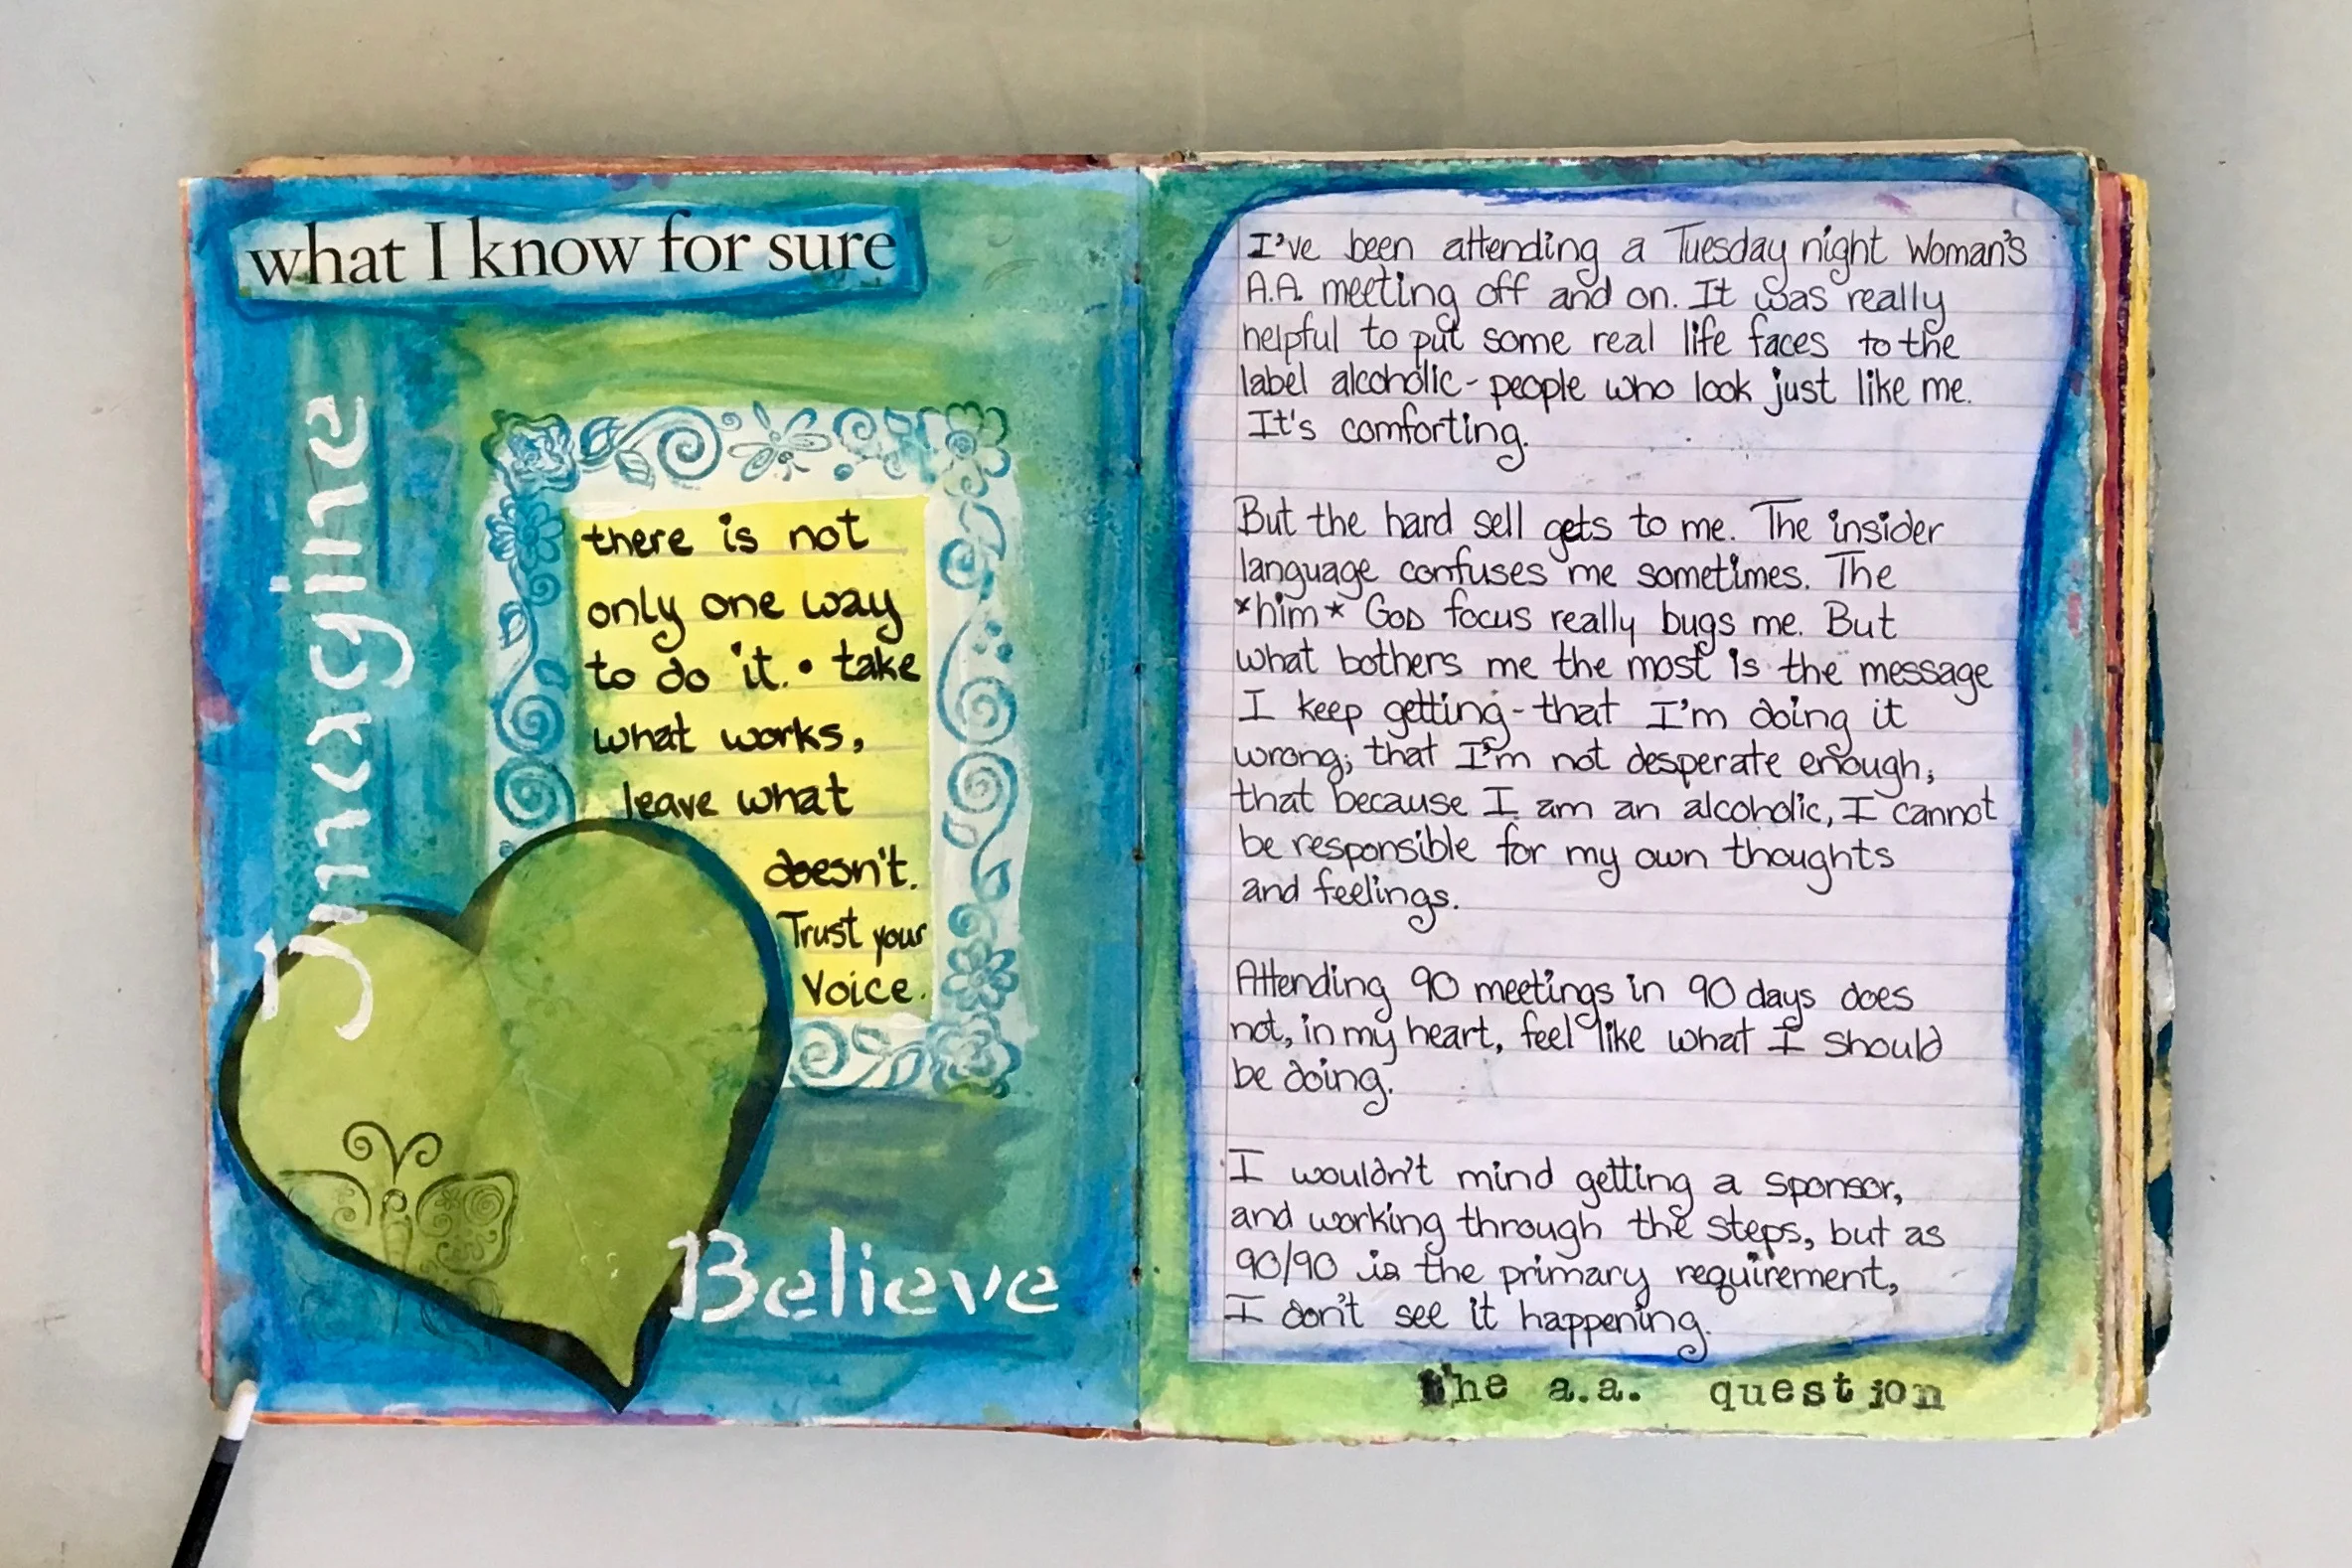 what I know for sure
Imagine
there is not
only one way
to do it. • take
what works,
leave what
doesn't.
Trust your
Voice.
Believe
I've been attending a Tuesday night Woman's
A.A. meeting off and on. It was really
helpful to put some real life faces to the
label alcoholic - people who look just like me.
It's comforting.
But the hard sell gets to me. The insider
language confuses me sometimes. The
*him* GOD focus really bugs me. But
what bothers me the most is the message
I keep getting - that I'm doing it
wrong; that I'm not desperate enough;
that because I am an alcoholic, I cannot
be responsible for my own thoughts
and feelings.
Attending 90 meetings in 90 days does
not, in my heart, feel like what I should
be doing.
I wouldn't mind getting a sponsor,
and working through the steps, but as
90/90 is the primary requirement,
I don't see it happening.
the a.a. question